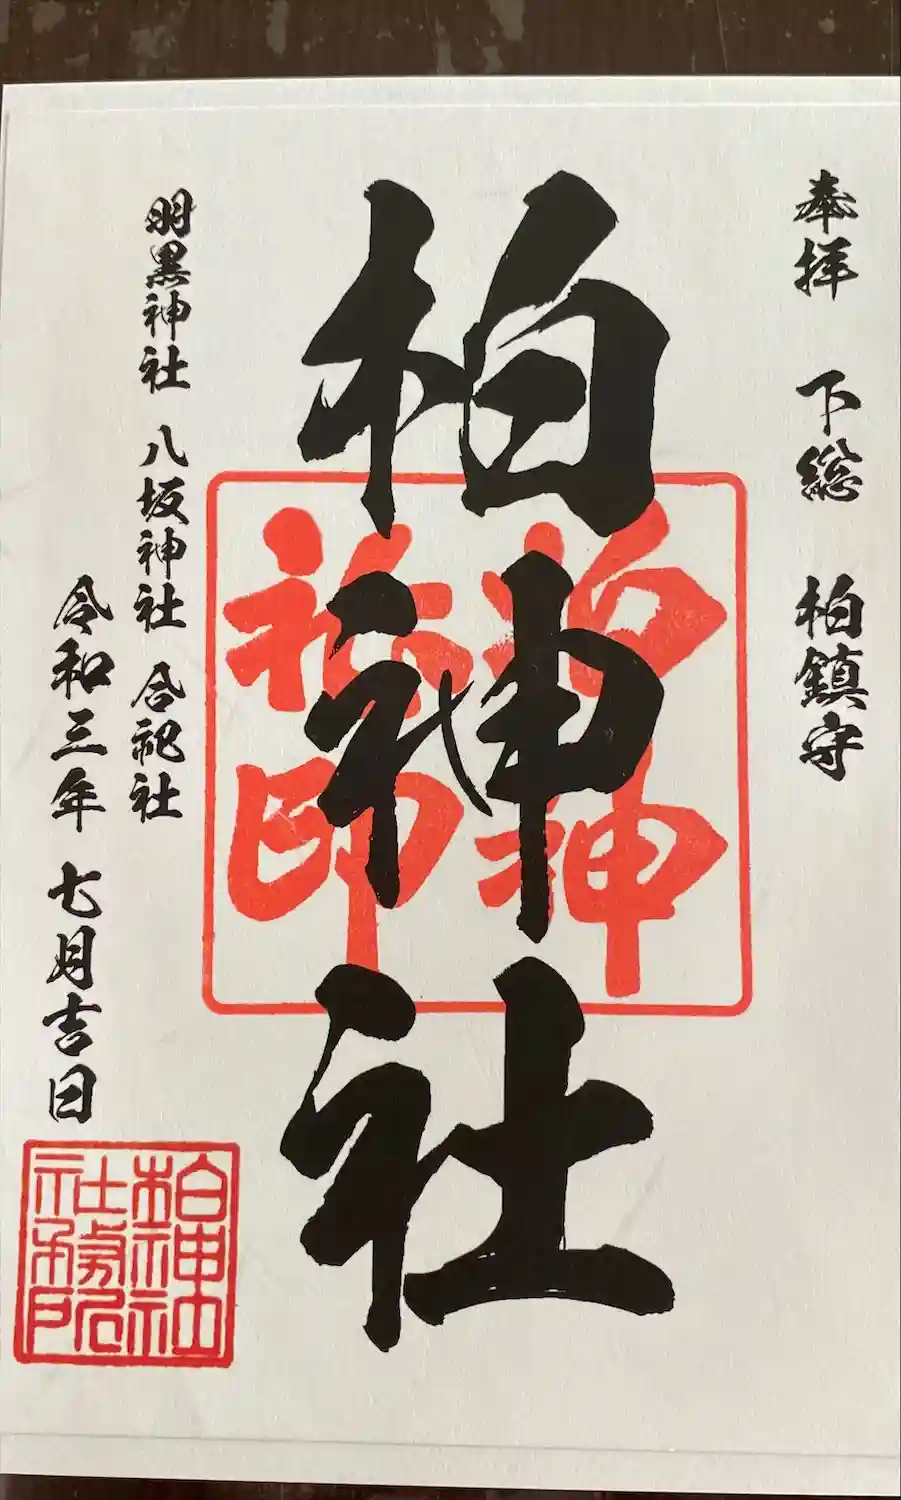 奉拝 下総 柏鎮守
柏神社
羽黒神社 八坂神社 合祀社
令和三年 七月吉日
柏神
社印
柏神社
社務所